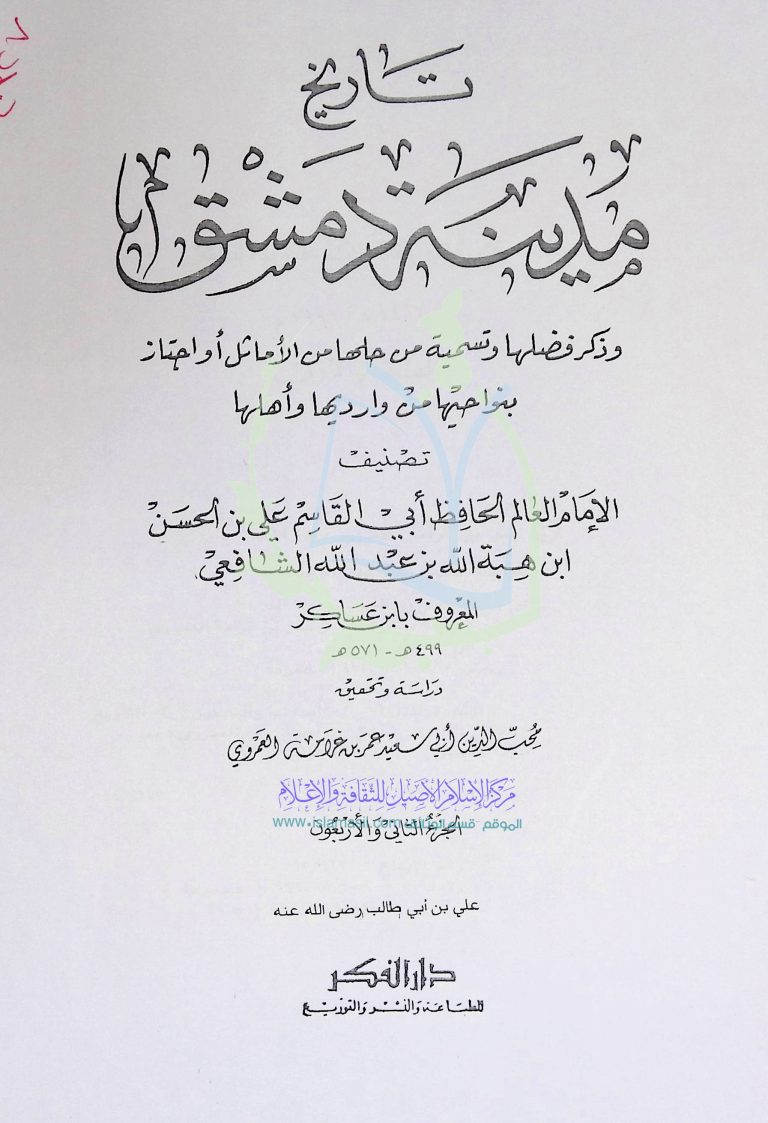 تاريخ
مدينة دمشق
وذكر فضلها وتسمية من حلها من الأماثل أو اجتاز
بنواحيها من وارديها وأهلها
تصنيف
الإمام العالم الحافظ أبي القاسم علي بن الحسن
ابن هبة الله بن عبد الله الشافعي
المعروف بابن عساكر
٤٩٩ هـ - ٥٧١ هـ
دراسة وتحقيق
محب الدين أبي سعيد عمر بن غرامة العمروي
مركز الإسلام الأصيل للثقافة والإعلام
www.islamasil.com الموقع
الجزء الثاني والأربعون
علي بن أبي طالب رضى الله عنه
دار الفكر
للطباعة والنشر والتوزيع